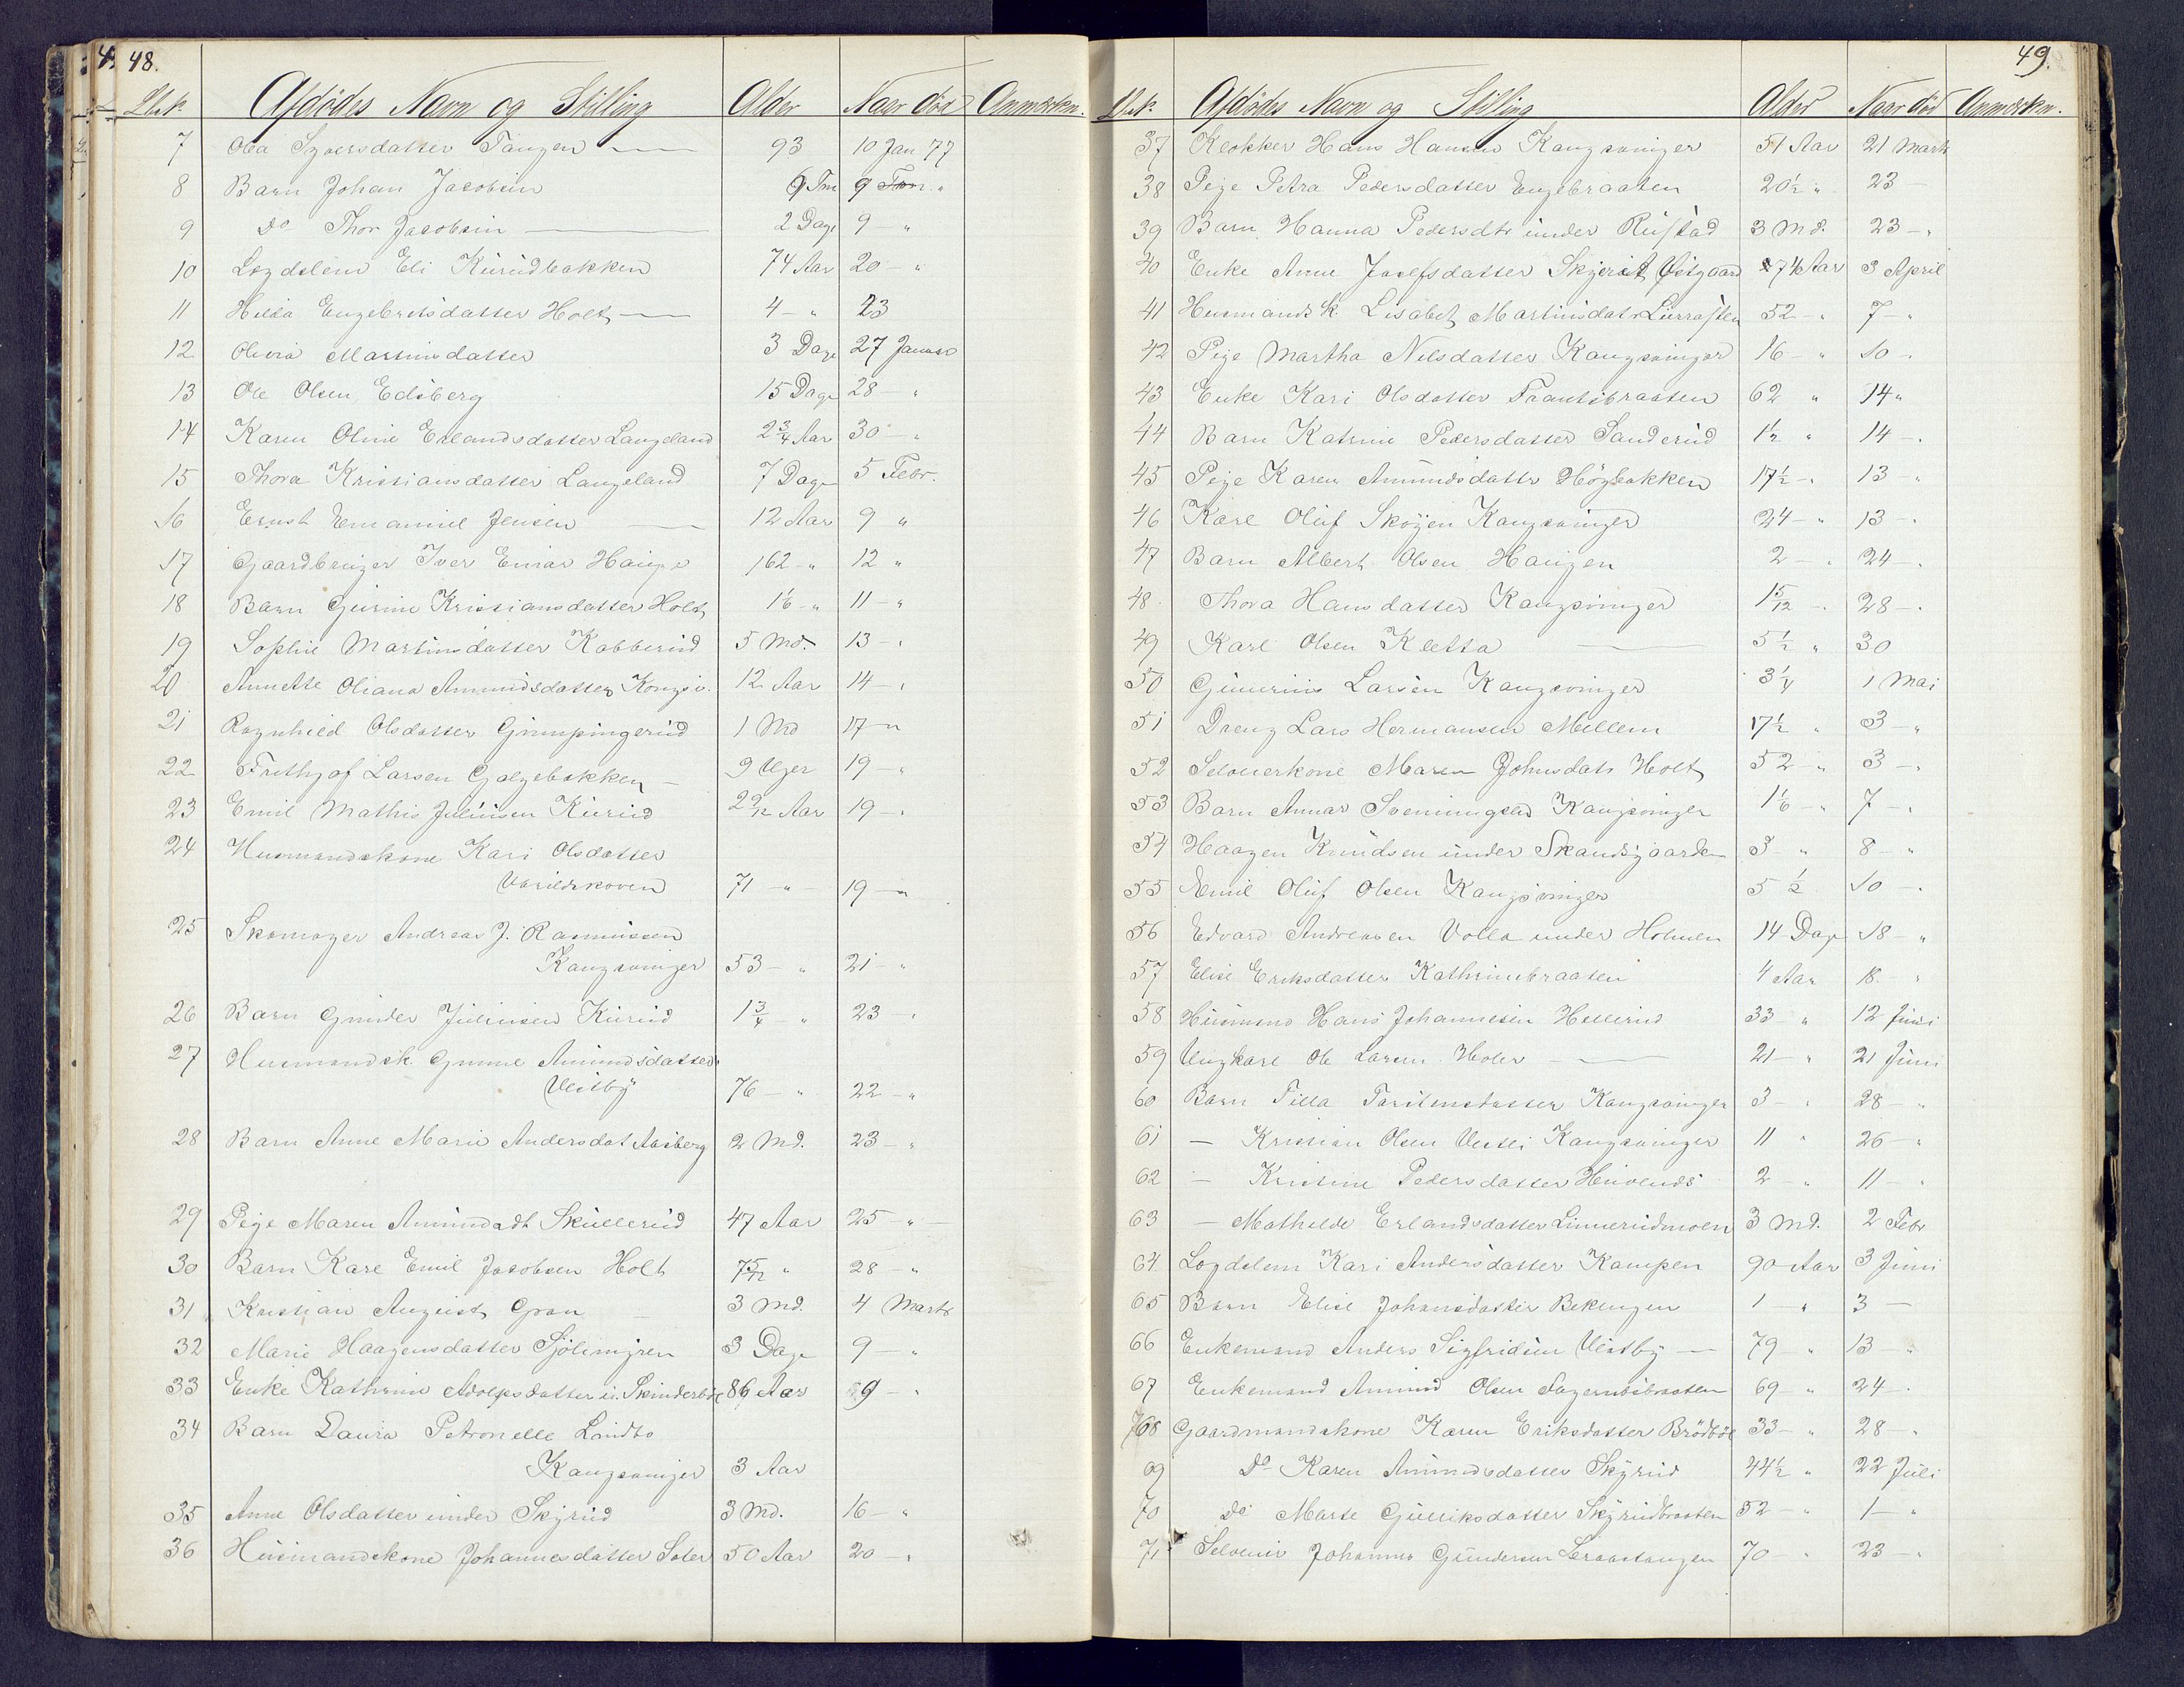 48.
Afdödes Navn og Stilling Alder Naar död Anmærkn.
7 Olea Syversdatter Tangen 93 10 Jan 77
8 Barn Johan Jacobsen 9
9 Do Thor Jacobsen 2 Dage 9 "
10 Lægdslem Eli Kurudbakken 74 Aar 20 - "
11 Hilda Engebretsdatter Holt 4 - " 23
12 Olivia Martinsdatter 3 Dage 27 Januar
13 Ole Olsen Edsberg 15 Dage 28 - "
14 Karen Oline Erlandsdatter Langeland 2 3/4 Aar 30 - "
15 Thora Kristiansdatter Langeland 7 Dage 5 Febr.
16 Ernst Emanuel Jensen 12 Aar 9 "
17 Gaardbruger Iver Einar Hauge 62 - " 12 "
18 Barn Gurine Kristiansdatter Holt 1 1/6 - " 11 - "
19 Sophie Martinsdatter Kabberud 5 Md. 13 - "
20 Annette Oliana Amundsdatter Kongsv. 12 Aar 14 - "
21 Ragnhild Olsdatter Grimpingerud 1 Md 17 - "
22 Frithjof Larsen Galgebakken 9 Uger 19 - "
23 Emil Mathis Juliusen Kurud 2 9/12 Aar 19 - "
24 Husmandskone Kari Olsdatter
Varildskoven 71 - " 19 - "
25 Skomager Andreas J. Rasmussen
Kongsvinger 53 - " 21 - "
26 Barn Gunder Juliusen Kurud 1 3/4 - " 23 - "
27 Husmandsk. Gunne Amundsdatter
Vestby 76 - " 22 - "
28 Barn Anne Marie Andersdat Aasberg 2 Md. 23 - "
29 Pige Maren Amundsdt Skullerud 47 Aar 25 - "
30 Barn Karl Emil Jacobsen Holt 7 5/12 " 28 - "
31 Kristian August Gran 3 Md. 4 Marts
32 Marie Haagensdatter 3 Dage 9 - "
33 Enke Kathrine Adolfsdatter u. Skinderböl 86 Aar 9 - "
34 Barn Laura Petronelle Lindbo
Kongsvinger 3 Aar
35 Anne Olsdatter under Skyrud 3 Md. 16 - "
36 Husmandskone Johannesdatter Soler 50 Aar 20 - "
49.
Afdödes Navn og Stilling Alder Naar död Anmærkn.
37 Klokker Hans Hansen Kongsvinger 51 Aar 21 Marts
38 Pige Petra Pedersdatter Engebraaten 20 1/2 " 23 -
39 Barn Hanna Pedersdtr under Rustad 3 Md. 23 - "
40 Enke Anne Josefsdatter Østgaard 74 Aar 3 April
41 Husmandsk. Lisabet Martinsdatr 52 - " 7 - "
42 Pige Martha Nilsdatter Kongsvinger 16 - " 10 - "
43 Enke Kari Olsdatter Frantsbraaten 62 " 14 "
44 Barn Katrine Pedersdatter Sanderud 1 1/2 " 14 - "
45 Pige Karen Amundsdattr Högbakken 17 1/2 - " 13 - "
46 Karl Oluf Skøyen Kongsvinger 24 - " 13 - "
47 Barn Albert Olsen Haugen 2 - " 24 - "
48 Thora Hansdatter Kongsvinger 1 5/12 - " 28 - "
49 Karl Olsen Kletta 5 1/2 " 30
50 Gunerius Larsen Kongsvinger 3 1/4 1 Mai
51 Dreng Lars Hermansen Mellem 17 1/2 " 3 - "
52 Selveierkone Maren Johnsdatr Holt 52 - " 3 - "
53 Barn Annar Sveningsen Kongsvinger 1 1/6 - " 7 - "
54 Haagen Knudsen under Skandsgaarden 3 - " 8 - "
55 Emil Oluf Olsen Kongsvinger 5 1/2 10 - "
56 Edvard Andreasen Volla under Holmen 14 Dage 18 - "
57 Elise Eriksdatter Kathrinebraaten 4 Aar 18 - "
58 Husmand Hans Johannesen Hellerud 33 - " 12 Juni
59 Ungkarl Ole Larsen Holer 21 - " 21 Juni
60 Barn Tilla Kongsvinger 3 - " 28 - "
61 — Kristian Olsen Kongsvinger 11 " 26 - "
62 — Kristine Pedersdatter 2 - " 11 - "
63 — Mathilde Erlandsdatter Linnerudmoen 3 Md. 2 Febr
64 Lægdslem Kari Andersdatter Kampen 90 Aar 3 Juni
65 Barn Elise Johansdatter Bekengen 1 - " 3 -
66 Enkemand Anders Sigfridsen Vestby 79 - " 13 - "
67 Enkemand Amund Olsen 69 - " 24 - "
68 Gaardmandskone Karen Eriksdatter Brödböl 33 - " 28 - "
69 Do Karen Amundsdatter Skyrud 44 1/2 " 22 Juli
70 Do Marte Gulliksdatter Skyrudbraaten 52 - " 1 - "
71 Selveier Johannes Gundersen 70 - " 23 - "